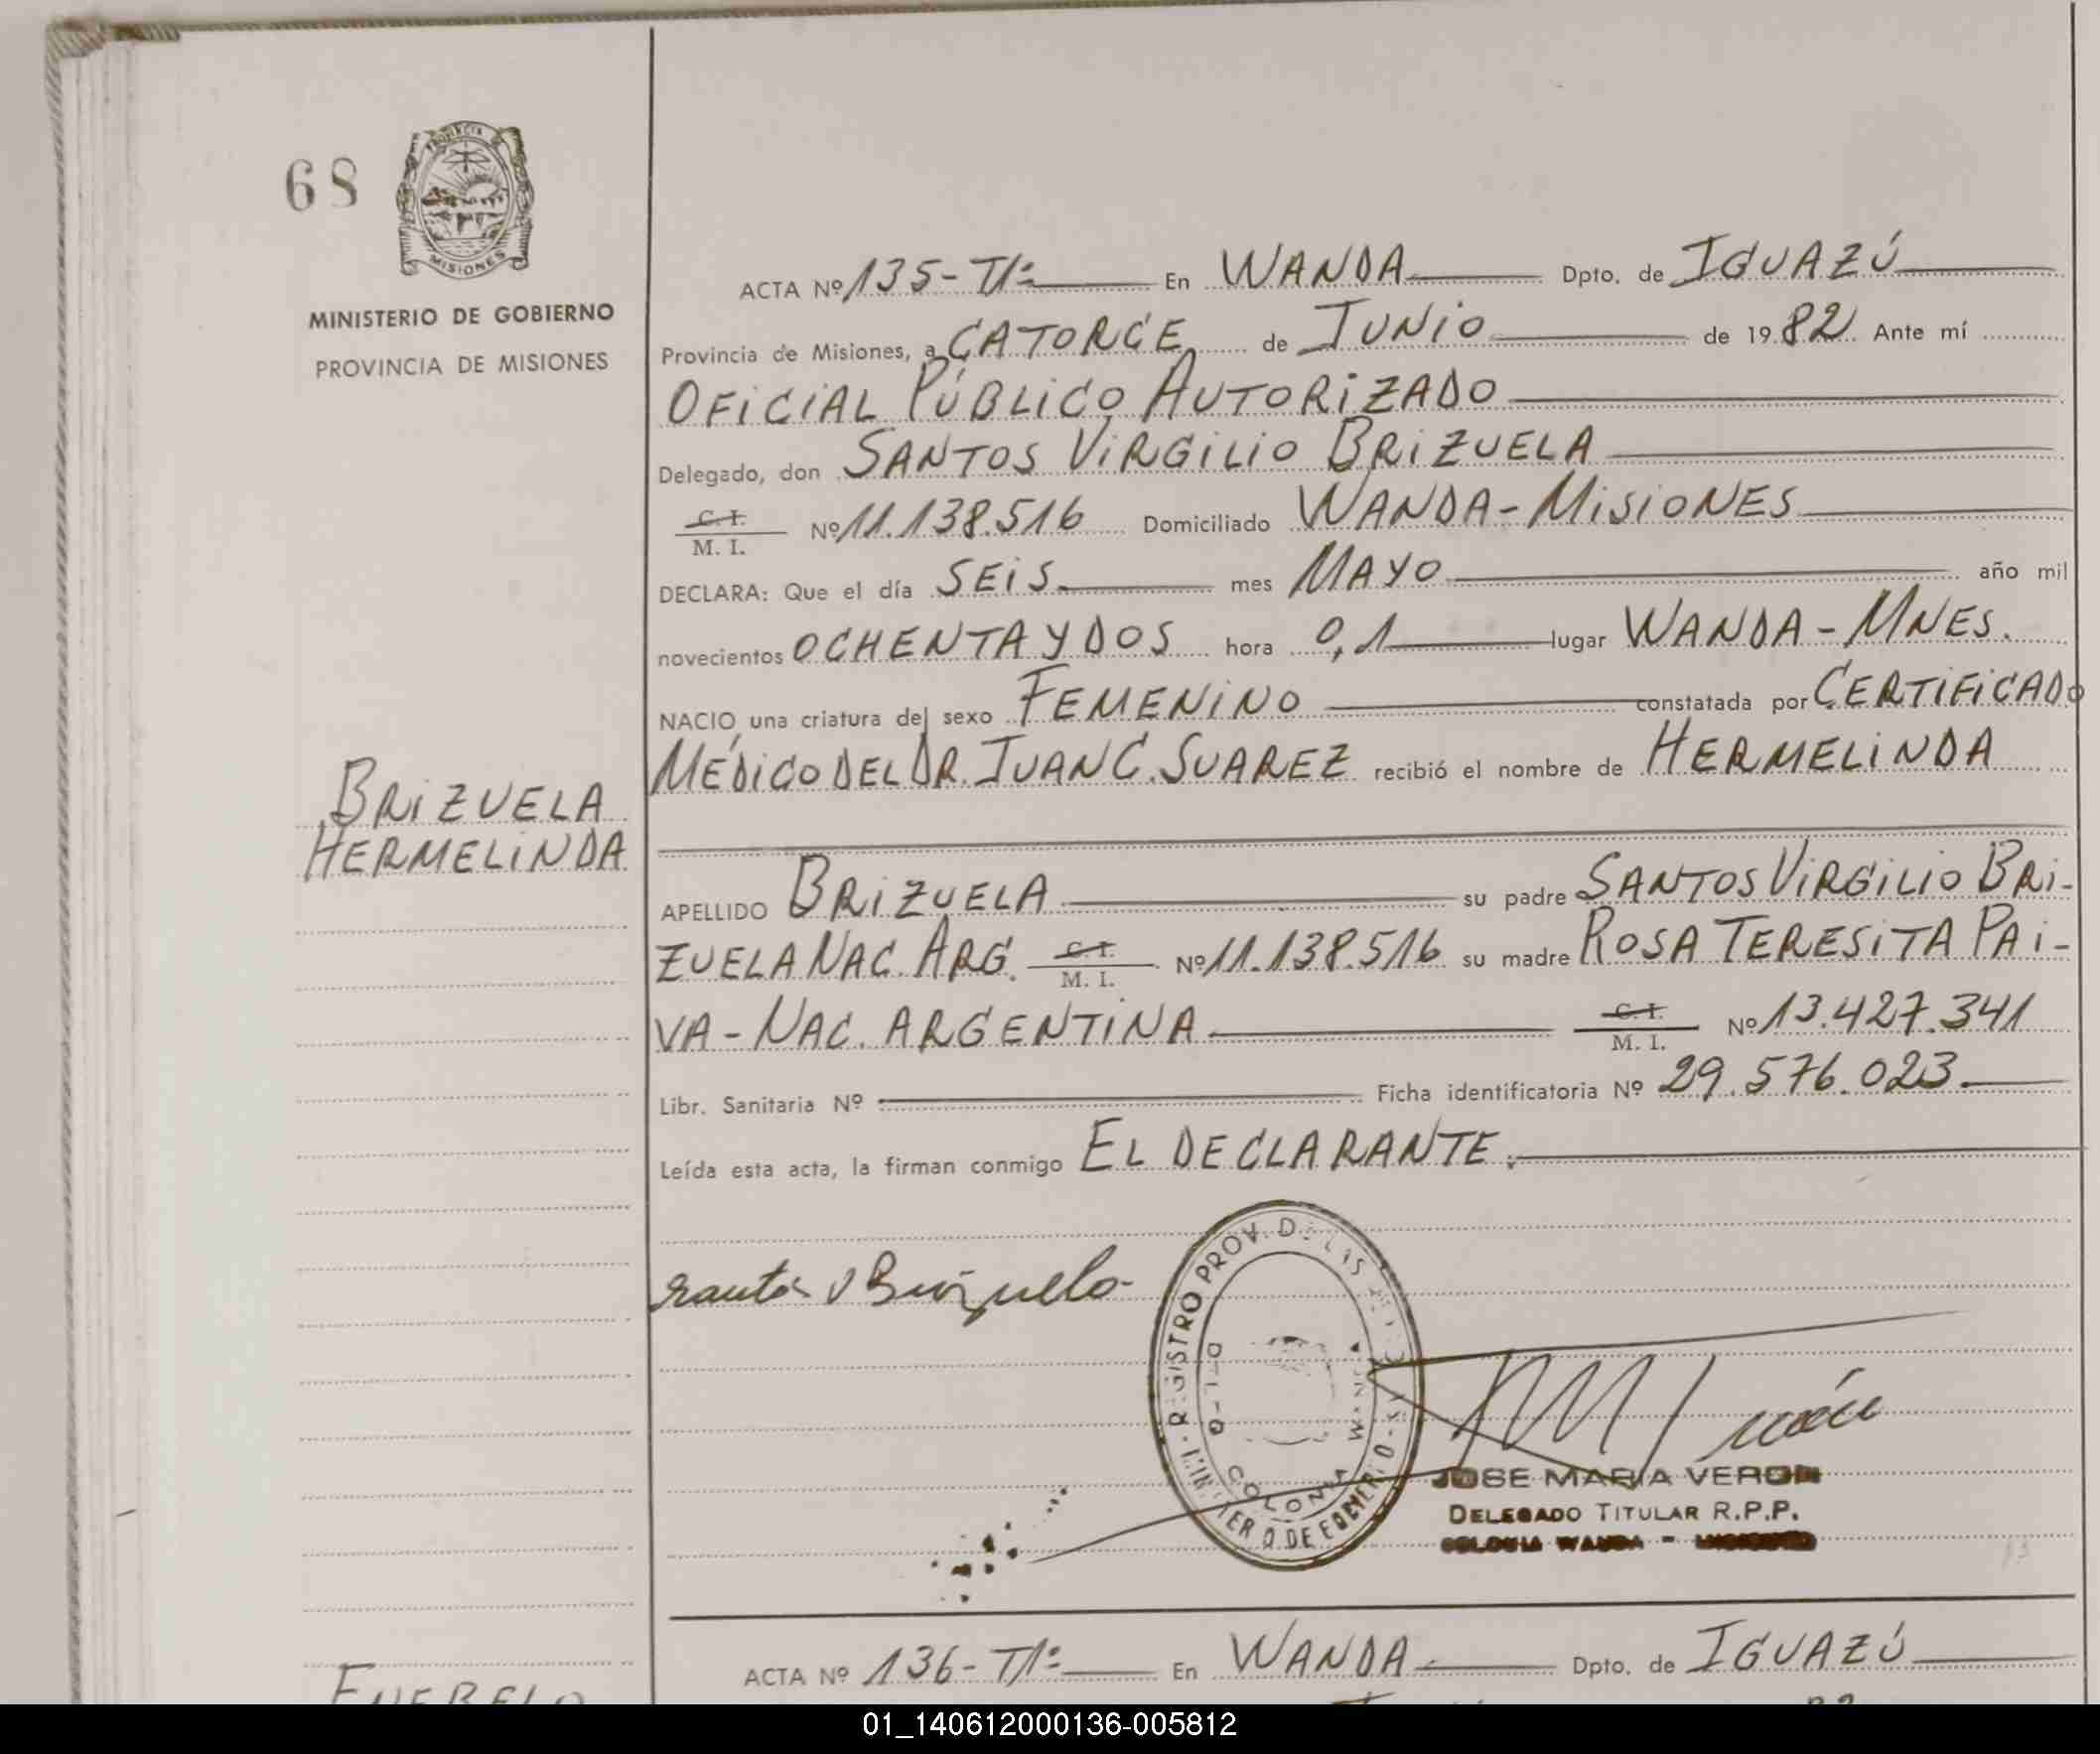 68
PROVINCIA DE
MISIONES
MINISTERIO DE GOBIERNO
PROVINCIA DE MISIONES
ACTA Nº 135-Tº1º En WANDA Dpto. de IGUAZÚ
Provincia de Misiones, a CATORCE de JUNIO de 1982 Ante mí
OFICIAL PÚBLICO AUTORIZADO
Delegado, don SANTOS VIRGILIO BRIZUELA
C. I.
M. I. Nº 11.138.516 Domiciliado WANDA-MISIONES
DECLARA: Que el día SEIS mes MAYO año mil
novecientos OCHENTA Y DOS hora 0,1 lugar WANDA-MNES.
NACIO una criatura del sexo FEMENINO constatada por CERTIFICADO
MÉDICO DEL DR. JUAN C. SUAREZ recibió el nombre de HERMELINDA
BRIZUELA
HERMELINDA
APELLIDO BRIZUELA su padre SANTOS VIRGILIO BRI-
ZUELA NAC. ARG. C. I.
M. I. Nº 11.138.516 su madre ROSA TERESITA PAI-
VA-NAC. ARGENTINA C. I.
M. I. Nº 13.427.341
Libr. Sanitaria Nº Ficha identificatoria Nº 29.576.023
Leída esta acta, la firman conmigo EL DECLARANTE.
Santos V Brizuela
REGISTRO PROV. DE LAS
MINISTERIO DE
COLONIA WANDA
JOSE MARIA VERON
DELEGADO TITULAR R.P.P.
COLONIA WANDA - MISIONES
ACTA Nº 136-Tº1º En WANDA Dpto. de IGUAZÚ
01_140612000136-005812